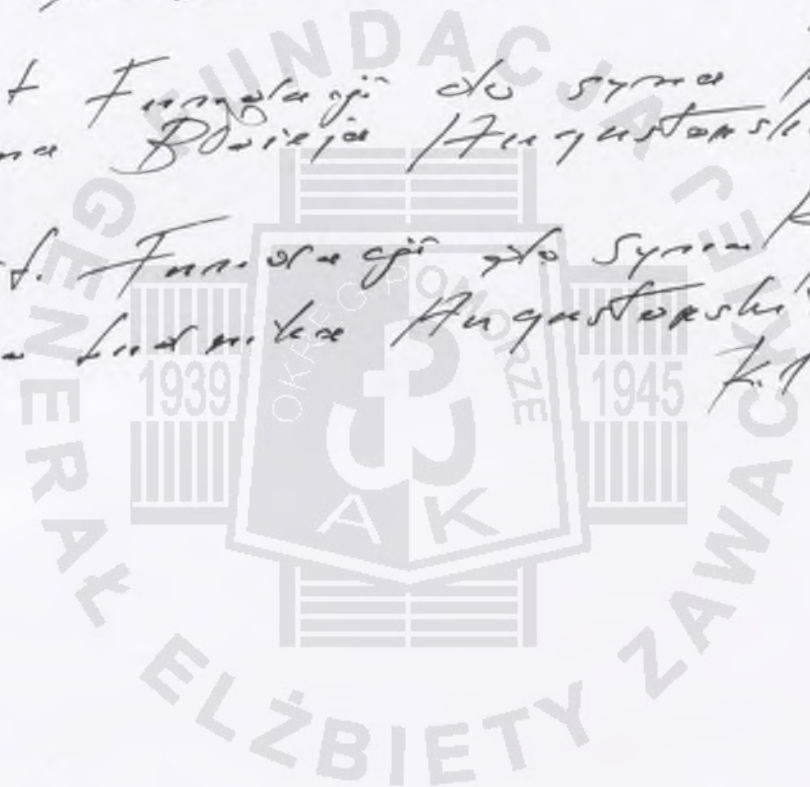 Fundacji do syna
Błażeja Augustowski
Fundacji do syna K
Ludwika Augustowski
K.
FUNDACJA GENERAŁ ELŻBIETY ZAWACKIEJ
OKRĘG POMORZE
1939 1945
A K